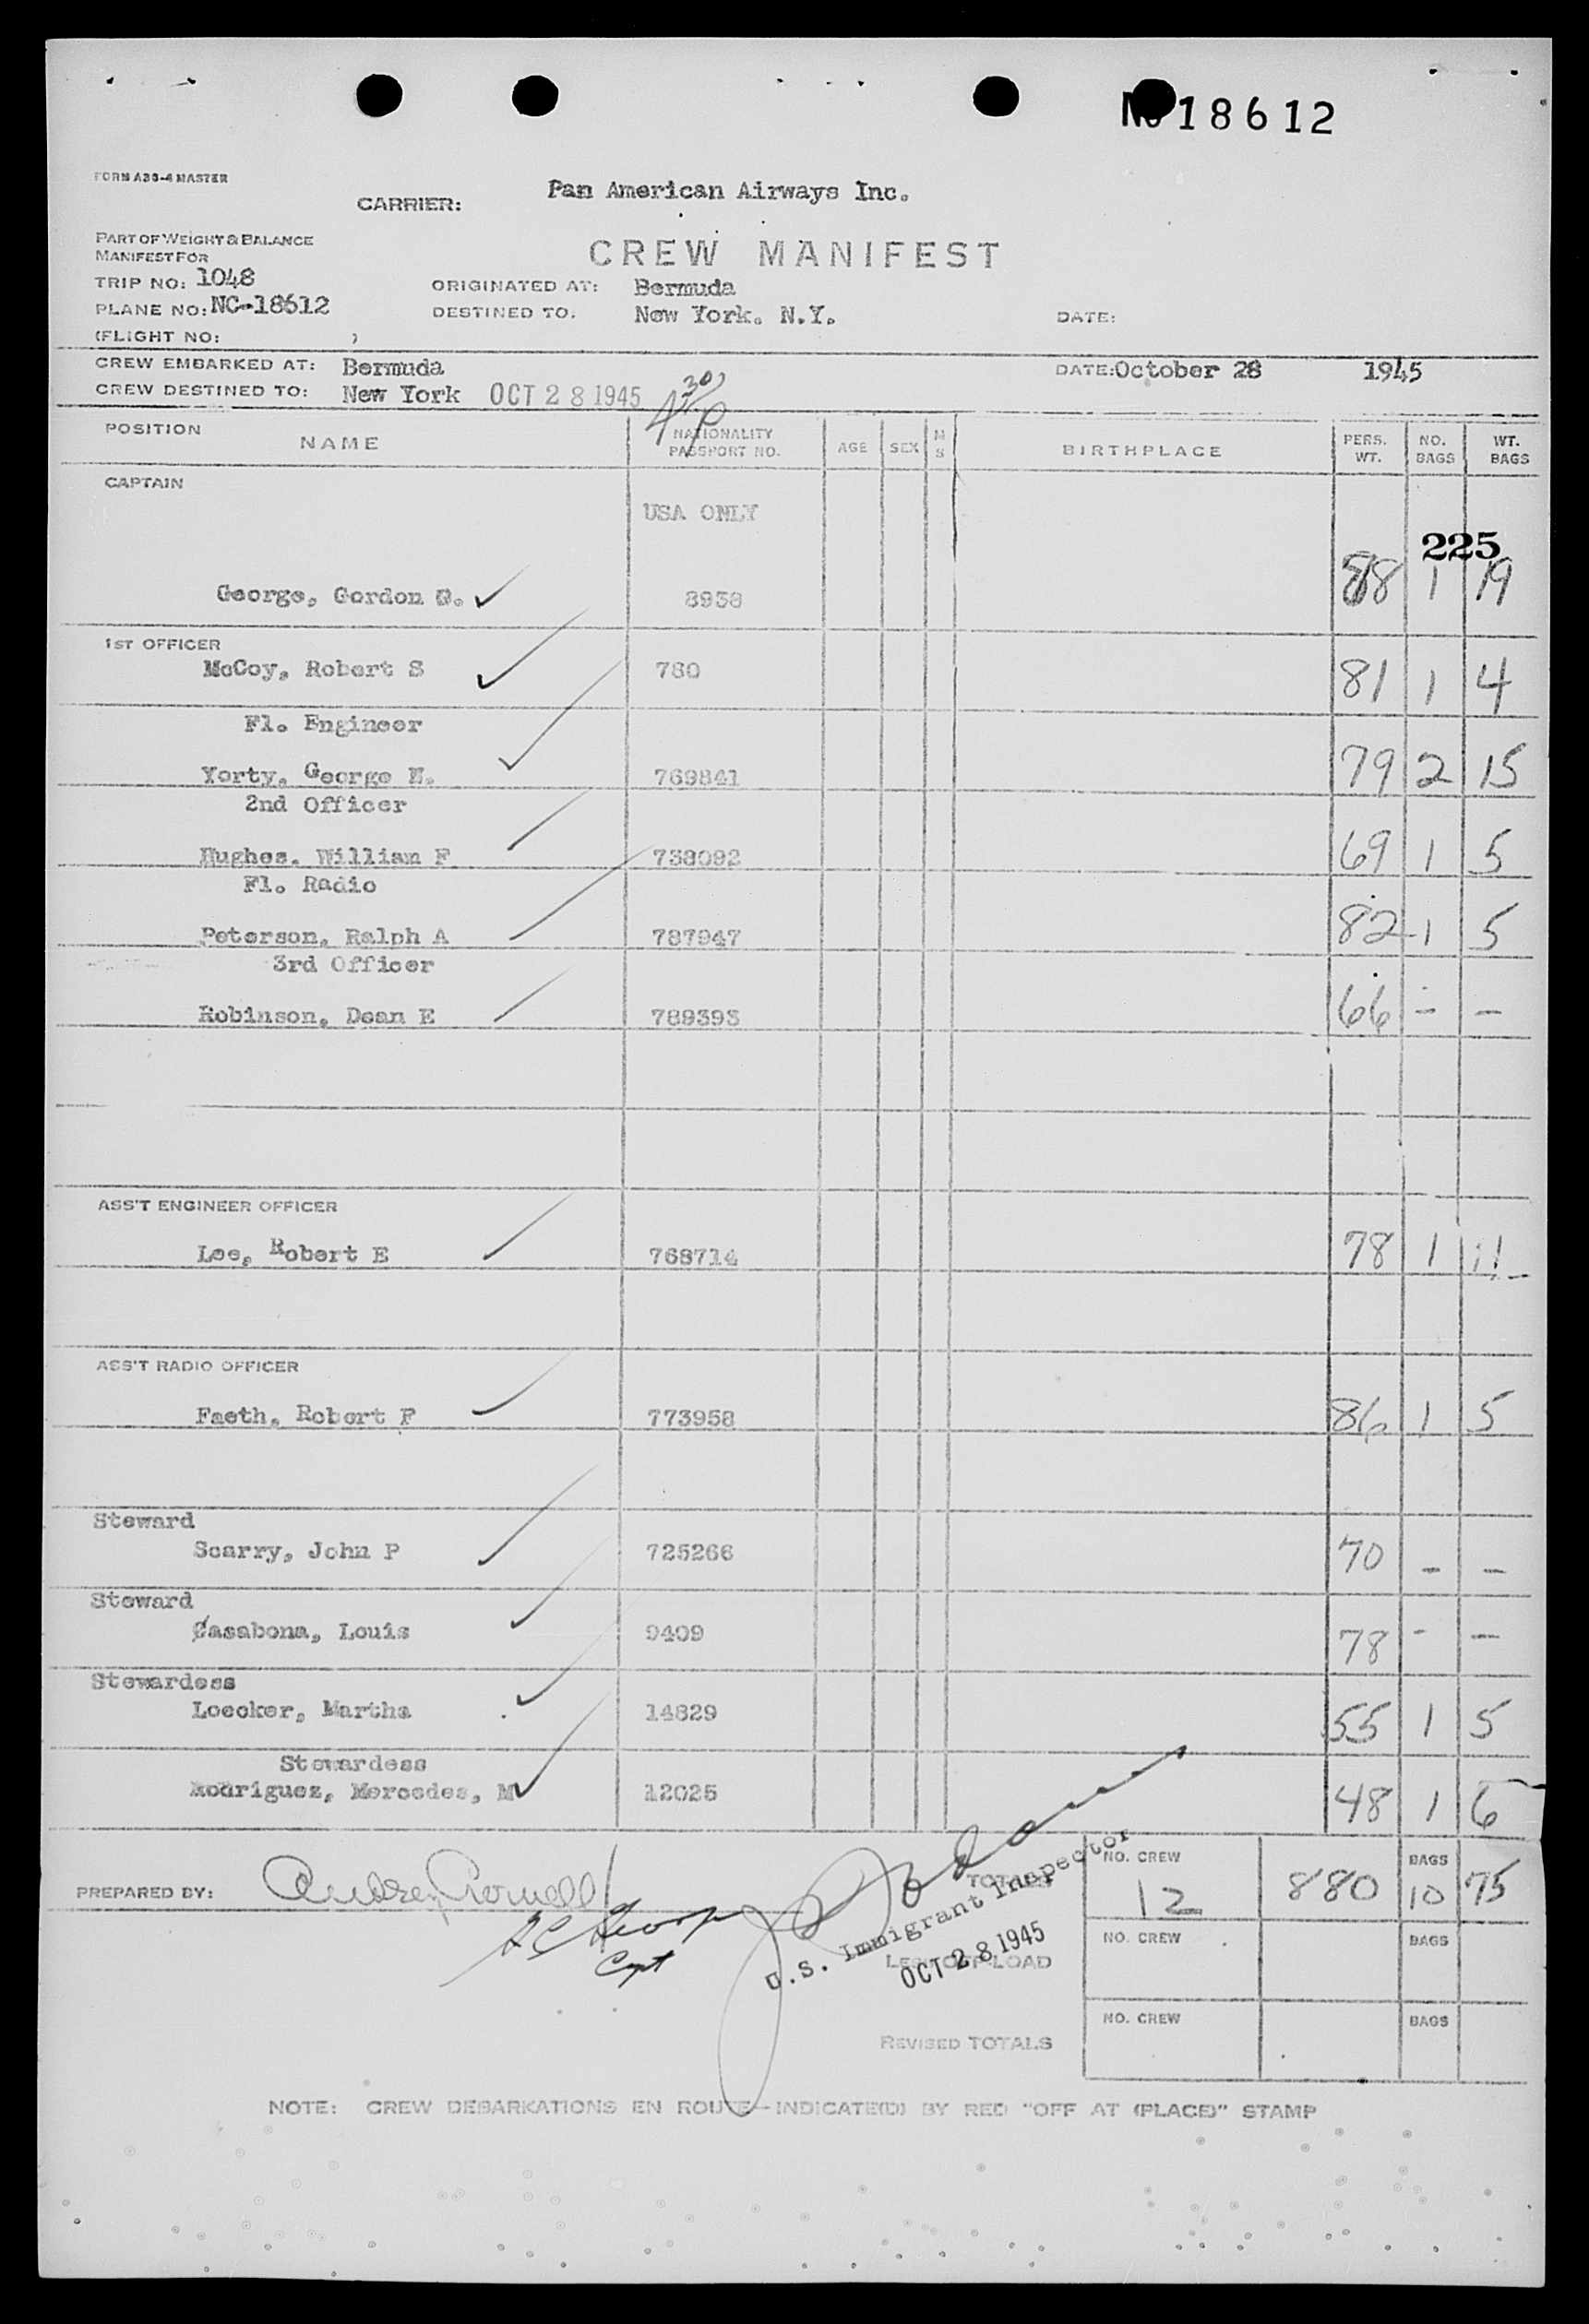 No 18612
FORM A38-4 MASTER
CARRIER: Pan American Airways Inc.
PART OF WEIGHT & BALANCE
MANIFEST FOR
CREW MANIFEST
TRIP NO: 1048
ORIGINATED AT: Bermuda
PLANE NO: NC-18612
DESTINED TO: New York. N.Y.
DATE:
(FLIGHT NO: )
CREW EMBARKED AT: Bermuda DATE: October 28 1945
CREW DESTINED TO: New York OCT 28 1945 4 30 P
POSITION NAME NATIONALITY PASSPORT NO. AGE SEX M S BIRTHPLACE PERS. WT. NO. BAGS WT. BAGS
CAPTAIN
USA ONLY
225
George, Gordon 8938 88 1 19
1ST OFFICER
McCoy, Robert S 780 81 1 4
Fl. Engineer
Yorty, George 769841 79 2 15
2nd Officer
Hughes. William F 738092 69 1 5
Fl. Radio
Peterson, Ralph A 787947 82 1 5
3rd Officer
Robinson, Dean E 789393 66 - -
ASS'T ENGINEER OFFICER
Lee, Robert E 768714 78 1 11
ASS'T RADIO OFFICER
Faeth, Robert F 773958 86 1 5
Steward
Scarry, John P 725266 70 - -
Steward
Casabona, Louis 9409 78 - -
Stewardess
Loecker, Martha 14829 55 1 5
Stewardess
Rodriguez, Mercedes, M 12025 48 1 6
PREPARED BY:
TOTALS
NO. CREW 12 880 BAGS 10 75
Capt
U.S. Immigrant Inspector
OCT 28 1945
LESS OFF-LOAD
NO. CREW BAGS
REVISED TOTALS
NO. CREW BAGS
NOTE: CREW DEBARKATIONS EN ROUTE—INDICATE(D) BY RED "OFF AT (PLACE)" STAMP